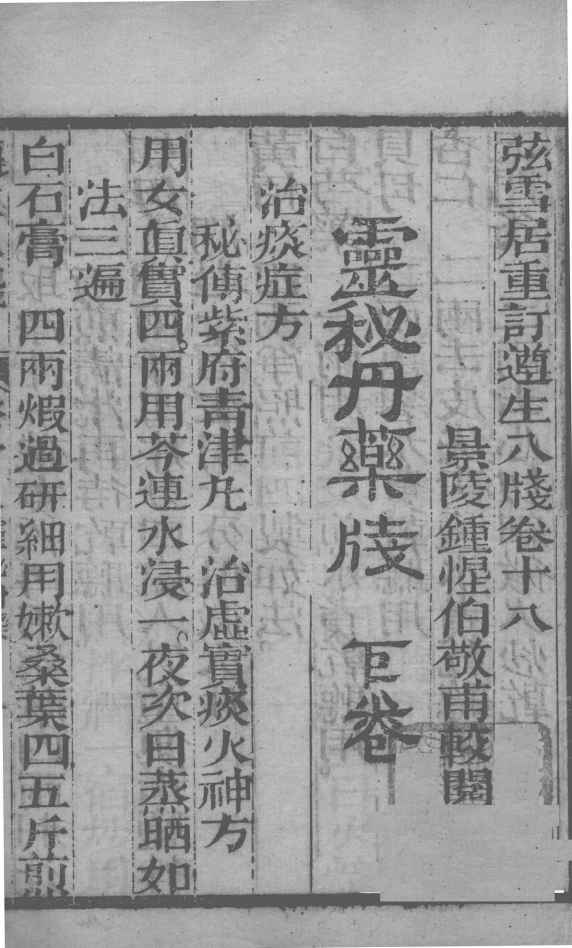 弦雪居重訂遵生八牋卷十八
景陵鍾惺伯敬甫較閱
靈秘丹藥牋 下卷
治痰症方
秘傳紫府青津丸 治虛實痰火神方
用女貞實四兩用芩連水浸一夜次日蒸晒如
法三遍
白石膏 四兩煅過研細用嫩桑葉四五斤煎